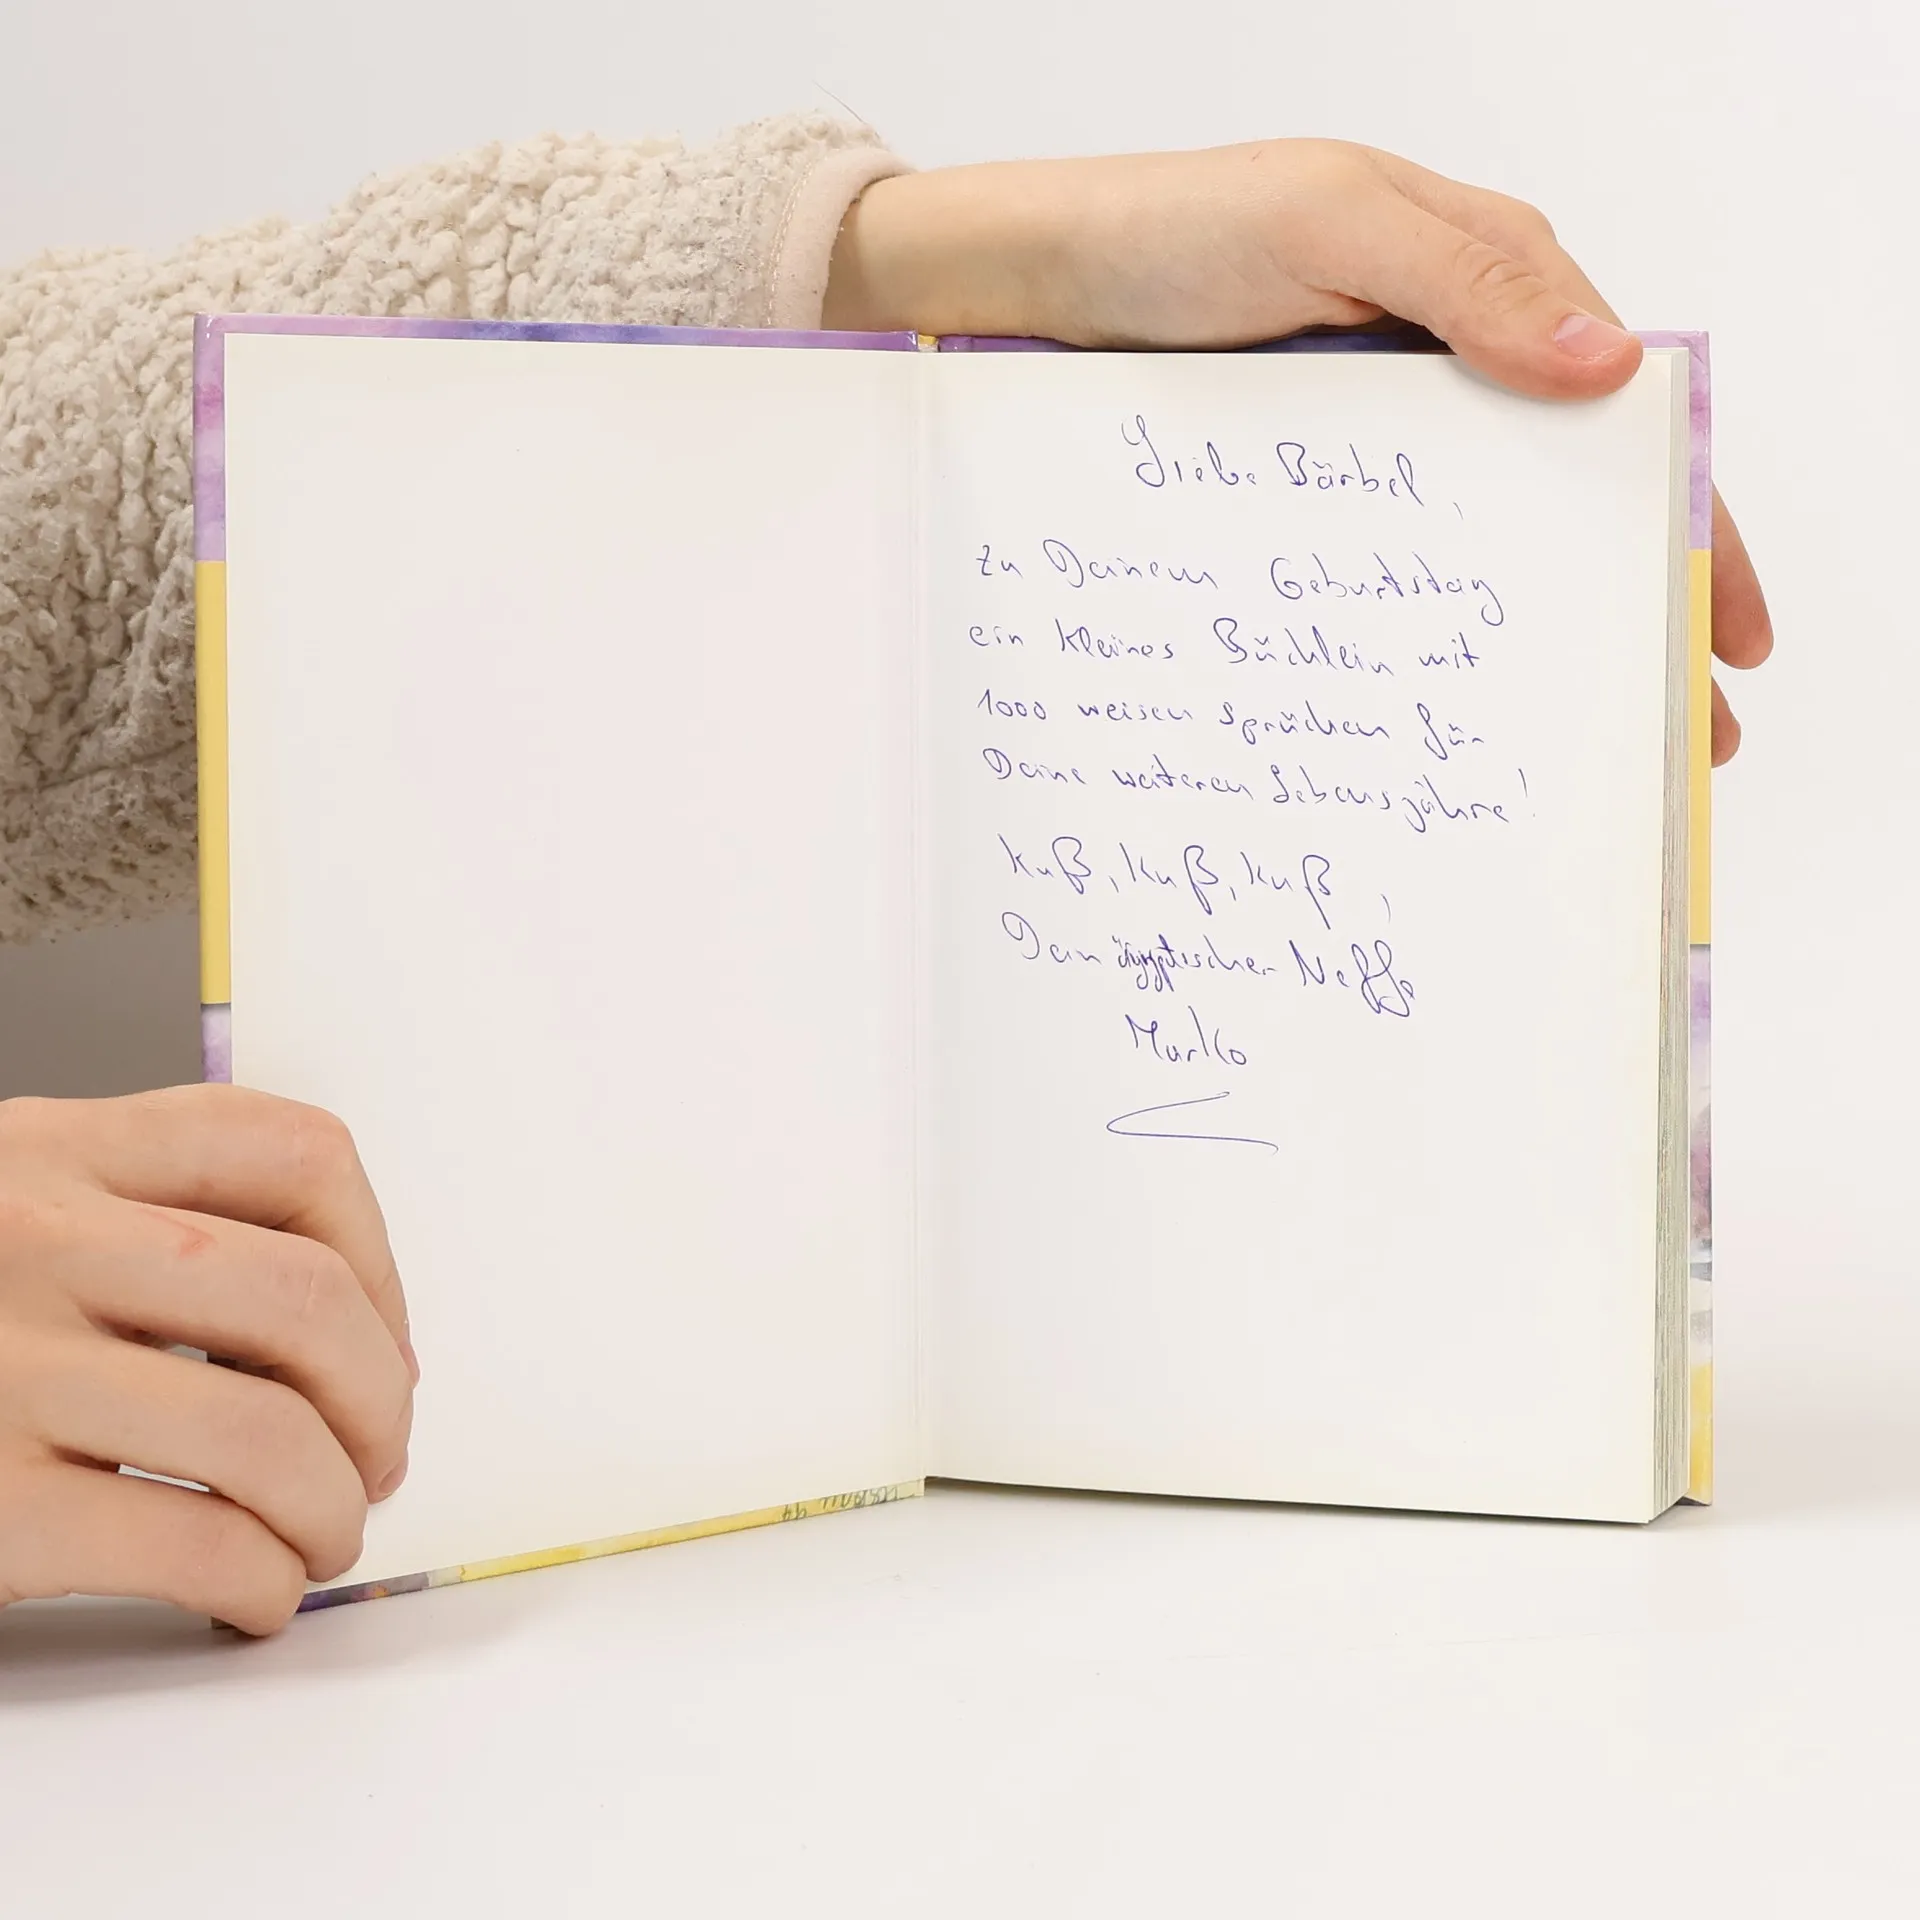 Liebe Bärbel,
zu Deinem Geburtstag
ein kleines Büchlein mit
1000 weisen Sprüchen für
Deine weiteren Lebensjahre!
Kuß, Kuß, Kuß,
Dein ägyptischer Neffe
Marko